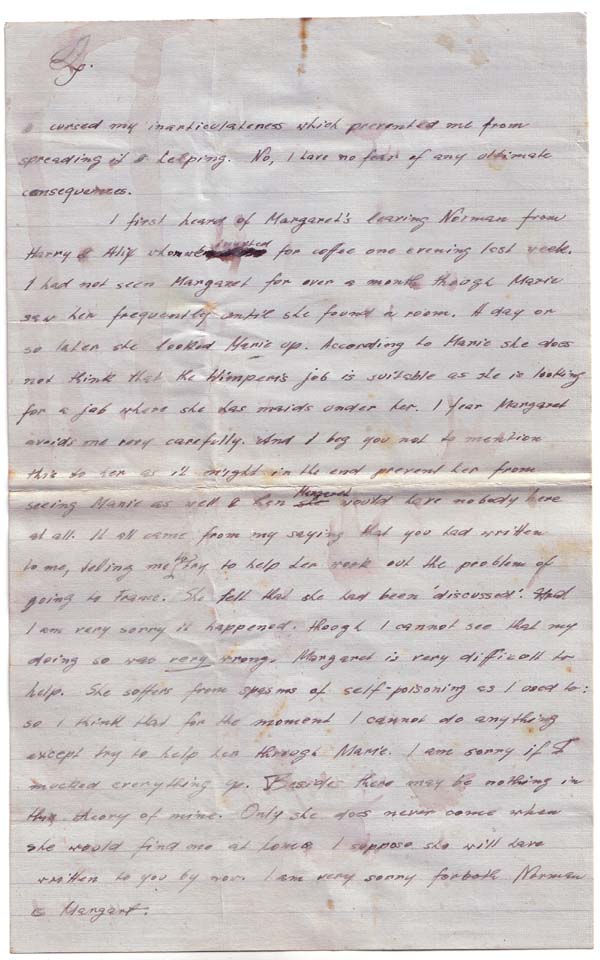 2.
I cursed my inarticulateness which prevented me from
spreading it & helping. No, I have no fear of any ultimate
consequences.
I first heard of Margaret's leaving Norman from
Harry & Alix whom we invited for coffee one evening last week.
I had not seen Margaret for over a month though Marie
saw her frequently until she found a room. A day or
so later she looked Marie up. According to Marie she does
not think that the job is suitable as she is looking
for a job where she has maids under her. I fear Margaret
avoids me very carefully. And I beg you not to mention
this to her as it might in the end prevent her from
seeing Marie as well & then Margaret would have nobody here
at all. It all came from my saying that you had written
to me, telling me to try to help her work out the problem of
going to France. She felt that she had been 'discussed'.
I am very sorry it happened. though I cannot see that my
doing so was very wrong. Margaret is very difficult to
help. She suffers from spasms of self-poisoning as I used to:
so I think that for the moment I cannot do anything
except try to help her through Marie. I am sorry if I
mucked everything up. Besides there may be nothing in
this theory of mine. Only she does never come when
she would find me at home. I suppose she will have
written to you by now. I am very sorry for both Norman
& Margart.